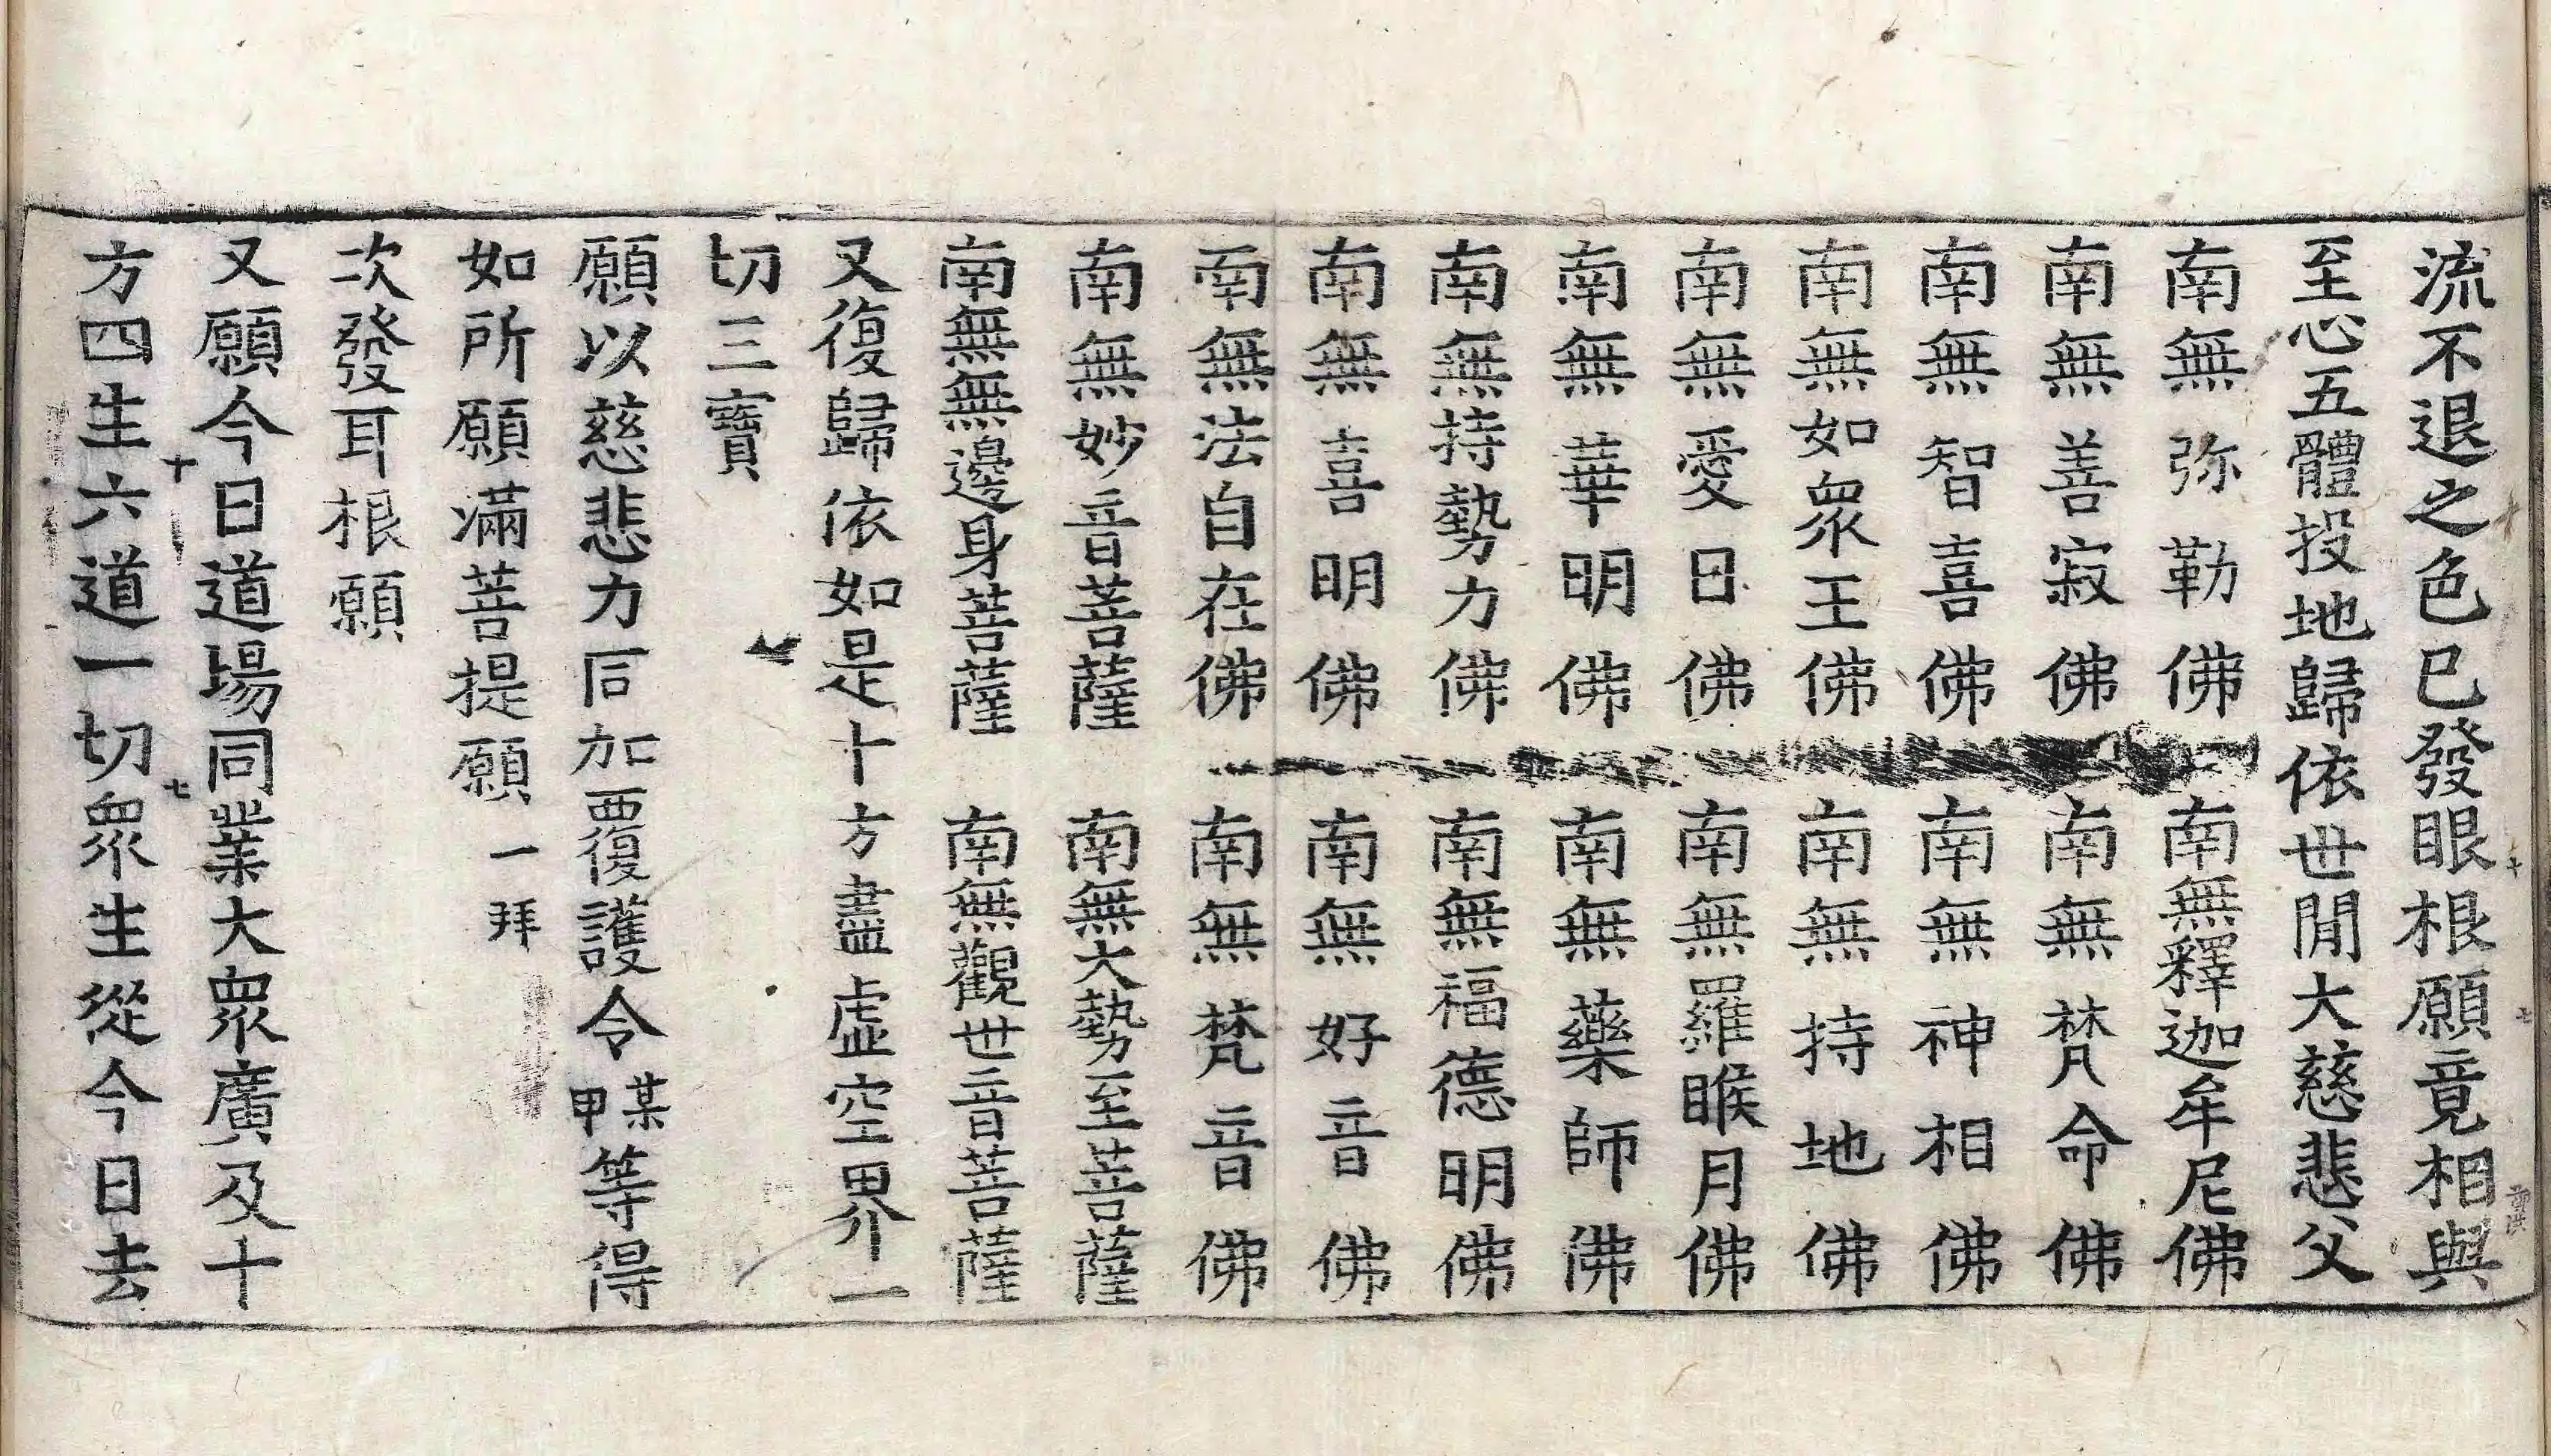 流不退之色已發眼根願竟相與
至心五體投地歸依世間大慈悲父
南無弥勒佛 南無釋迦牟尼佛
南無善寂佛 南無梵命佛
南無智喜佛 南無神相佛
南無如衆王佛 南無持地佛
南無愛日佛 南無羅睺月佛
南無華明佛 南無藥師佛
南無持勢力佛 南無福德明佛
南無喜明佛 南無好音佛
南無法自在佛 南無梵音佛
南無妙音菩薩 南無大勢至菩薩
南無無邊身菩薩 南無觀世音菩薩
又復歸依如是十方盡虛空界一
切三寶
願以慈悲力同加覆護令某甲等得
如所願滿菩提願 一拜
次發耳根願
又願今日道場同業大衆廣及十
方四生六道一切衆生從今日去
十 七